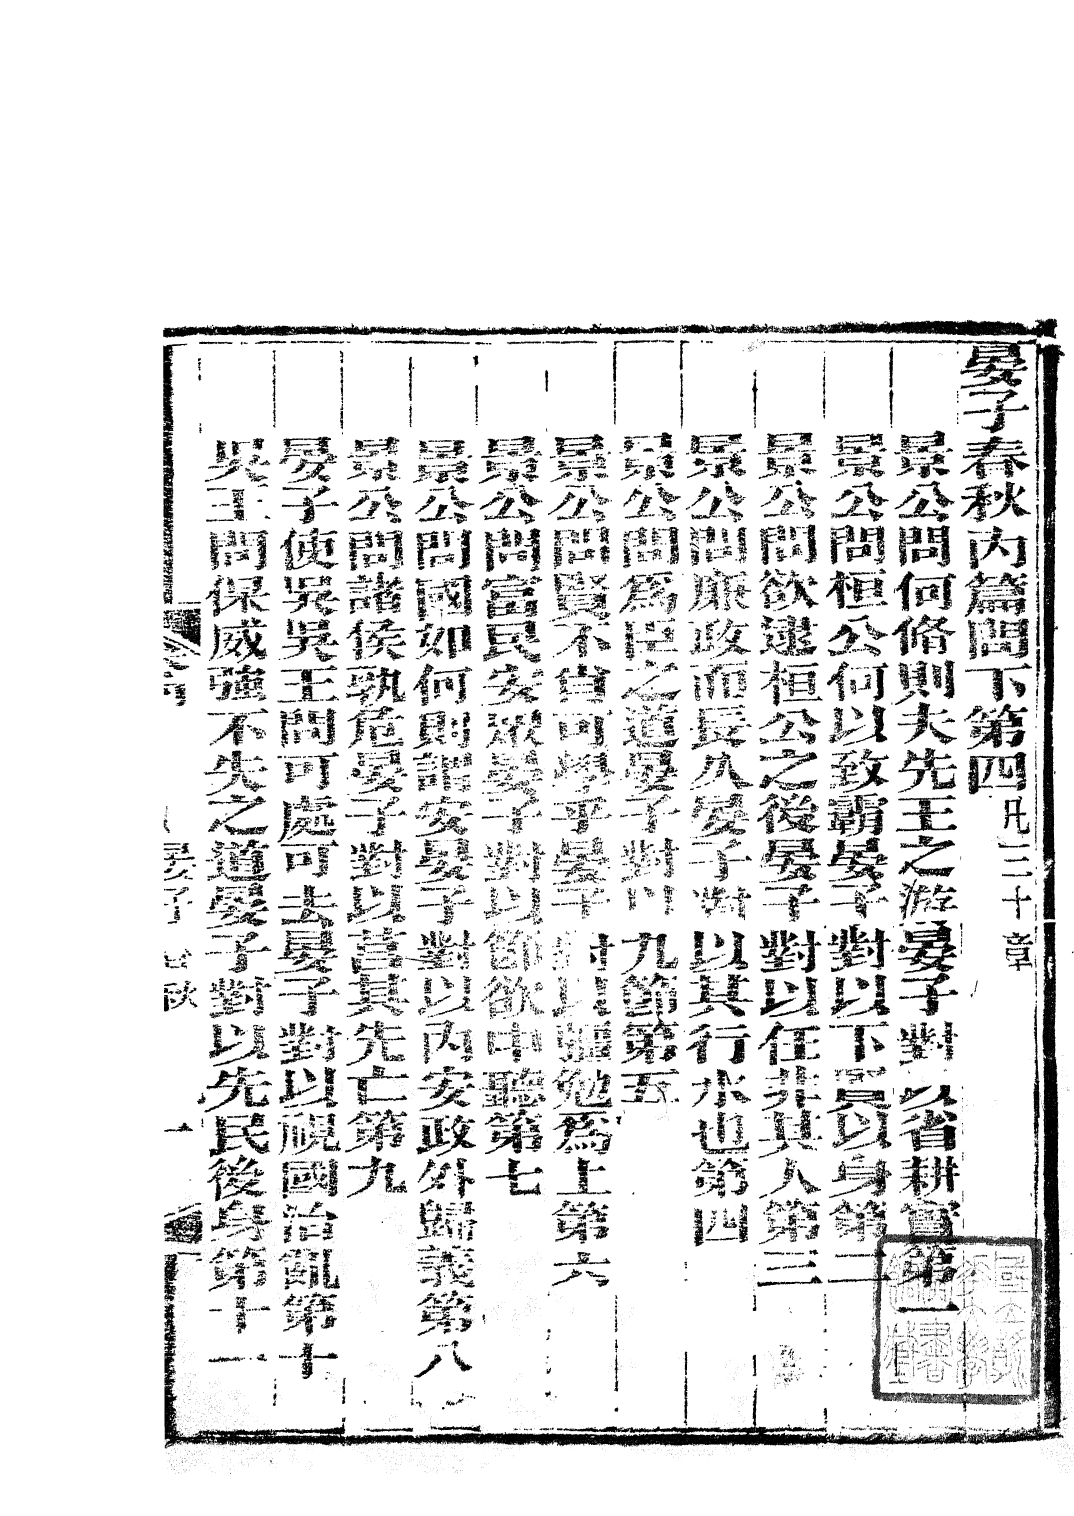 晏子春秋内篇問下第四凡三十章
景公問何脩則夫先王之游晏子對以省耕實第一
景公問桓公何以致霸晏子對以下賢以身第二
景公問欲逮桓公之後晏子對以任非其人第三
景公問廉政而長久晏子對以其行水也第四
景公問爲臣之道晏子對以九節第五
景公問賢不肖可學乎晏子對以彊勉爲上第六
景公問富民安衆晏子對以節欲中聽第七
景公問國如何則謂安晏子對以内安政外歸義第八
景公問諸侯孰危晏子對以莒其先亡第九
晏子使吳吳王問可處可去晏子對以視國治亂第十
吳王問保威強不失之道晏子對以先民後身第十一
晏子春秋 一